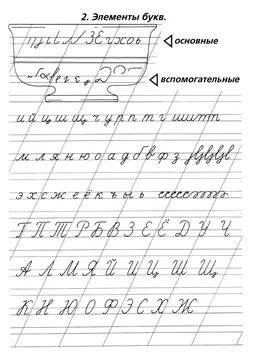 2. Элементы букв.
основные
вспомогательные
и й ц ш щ ч у р п т г ш и т т
м л я н ю о а д б в ф з
э х с ж е ё к ъ ы ь
Г П Т Р Б В З Е Ё Д У Ч
А Л М Я Й И Ц Ш Щ
К Н Ю О Ф Э С Х Ж